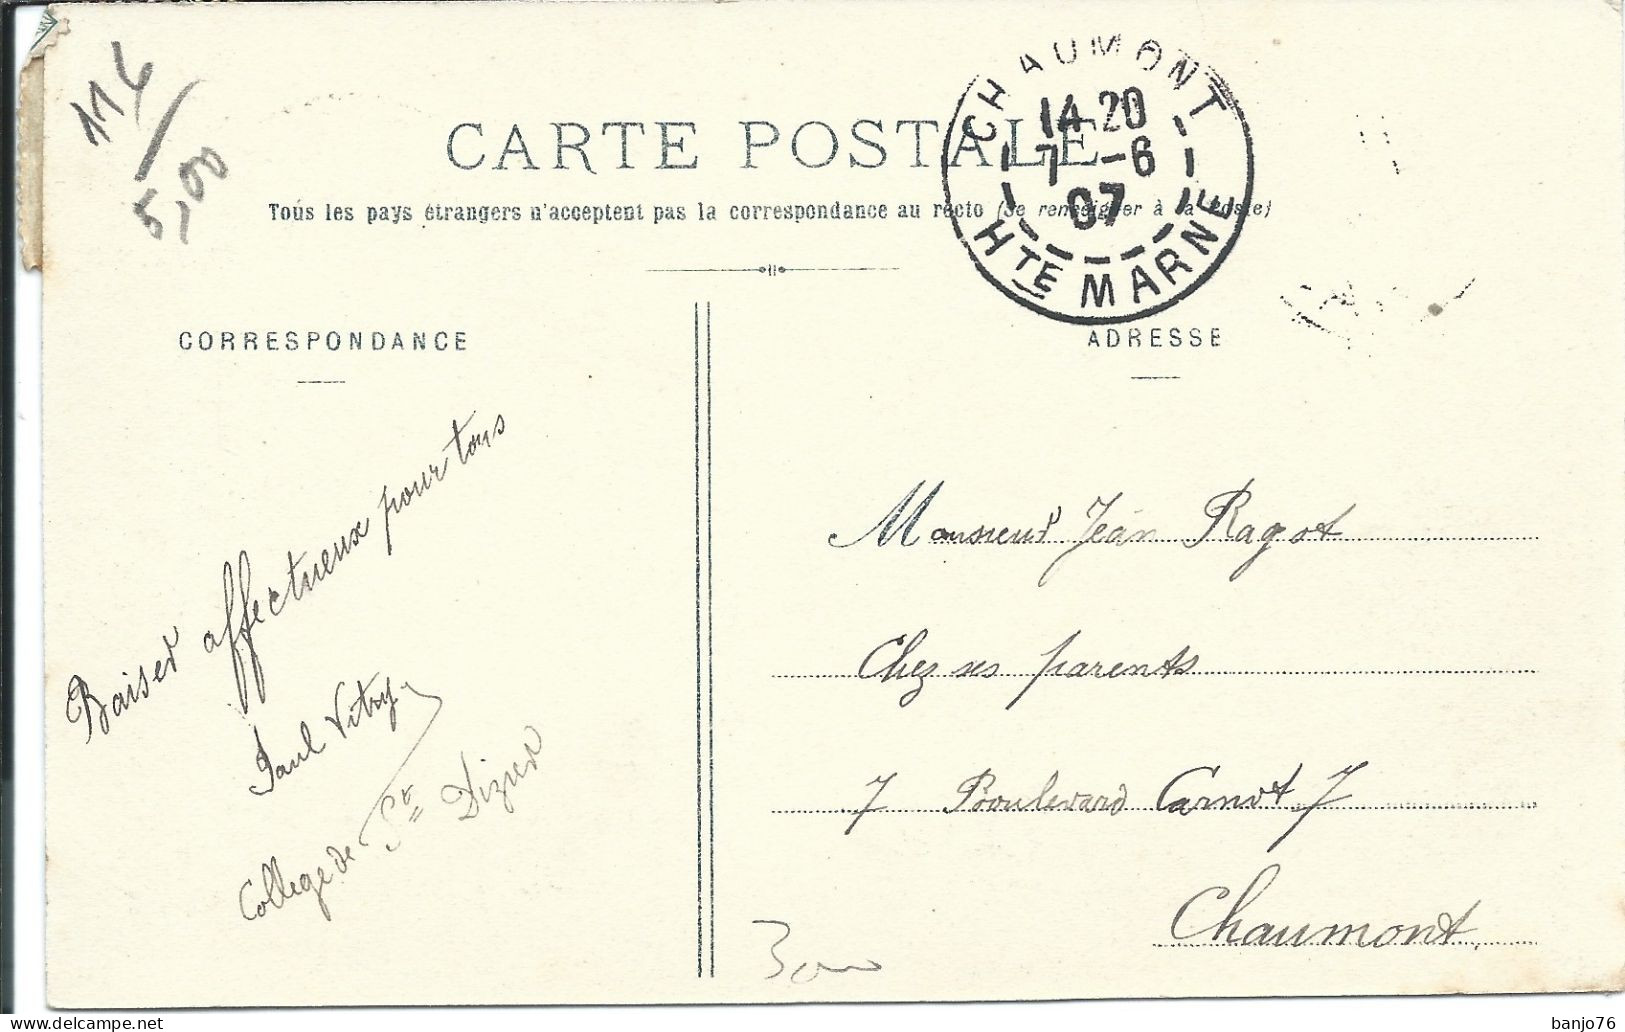 116
5,00
CARTE POSTALE
Tous les pays étrangers n'acceptent pas la correspondance au recto (Se renseigner à la Poste)
CHAUMONT
14 20
7 -6
07
HTE MARNE
CORRESPONDANCE
Baiser affectueux pour tous
Paul Vitry
Collège de St Dizier
ADRESSE
Monsieur Jean Ragot
Chez ses parents
7 Boulevard Carnot 7
Chaumont.
banjo76